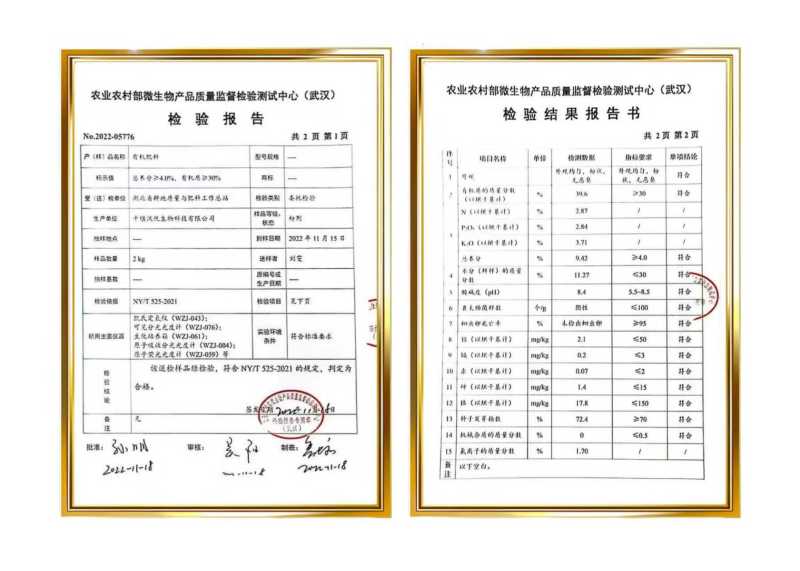 农业农村部微生物产品质量监督检验测试中心（武汉）
检 验 报 告
No.2022-05776 共 2 页 第 1 页
产（样）品名称 有机肥料 型号规格 —
标示值 总养分≥4.0%，有机质≥30% 商标 —
受（送）检单位 湖北省耕地质量与肥料工作总站 检验类别 委托检验
生产单位 十堰汉优生物科技有限公司 样品等级、状态 粉剂
抽样地点 — 到样日期 2022 年 11 月 15 日
样品数量 2 kg 送样者 刘雯
抽样基数 — 原编号或生产日期 —
检验依据 NY/T 525-2021 检验项目 见下页
所用主要仪器 凯氏定氮仪（WZJ-043）；
可见分光光度计（WZJ-076）；
生化培养箱（WZJ-061）；
原子吸收分光光度计（WZJ-084）；
原子荧光光度计（WZJ-059）等
实验环境条件 符合标准要求
检验结论 该送检样品经检验，符合 NY/T 525-2021 的规定，判定为
合格。
备注 无
批准： 审核： 制表：
2022-11-18 2022-11-18
农业农村部微生物产品质量监督检验测试中心（武汉）
检 验 结 果 报 告 书
共 2 页 第 2 页
序号 项目名称 单位 检测数据 指标要求 单项结论
1 外观 外观均匀，粉状，无恶臭 外观均匀，粉状，无恶臭 符合
2 有机质的质量分数（以烘干基计） % 39.6 ≥30 符合
3 N（以烘干基计） % 2.87 / /
P₂O₅（以烘干基计） % 2.84 / /
K₂O（以烘干基计） % 3.71 / /
总养分 % 9.42 ≥4.0 符合
4 水分（鲜样）的质量分数 % 11.27 ≤30 符合
5 酸碱度（pH） 8.4 5.5~8.5 符合
6 粪大肠菌群数 个/g 阴性 ≤100 符合
7 蛔虫卵死亡率 % 未检出蛔虫卵 ≥95 符合
8 铅（以烘干基计） mg/kg 2.1 ≤50 符合
9 镉（以烘干基计） mg/kg 0.2 ≤3 符合
10 汞（以烘干基计） mg/kg 0.07 ≤2 符合
11 砷（以烘干基计） mg/kg 1.4 ≤15 符合
12 铬（以烘干基计） mg/kg 17.8 ≤150 符合
13 种子发芽指数 % 72.4 ≥70 符合
14 机械杂质的质量分数 % 0 ≤0.5 符合
15 氯离子的质量分数 % 1.70 / /
备注 以下空白。